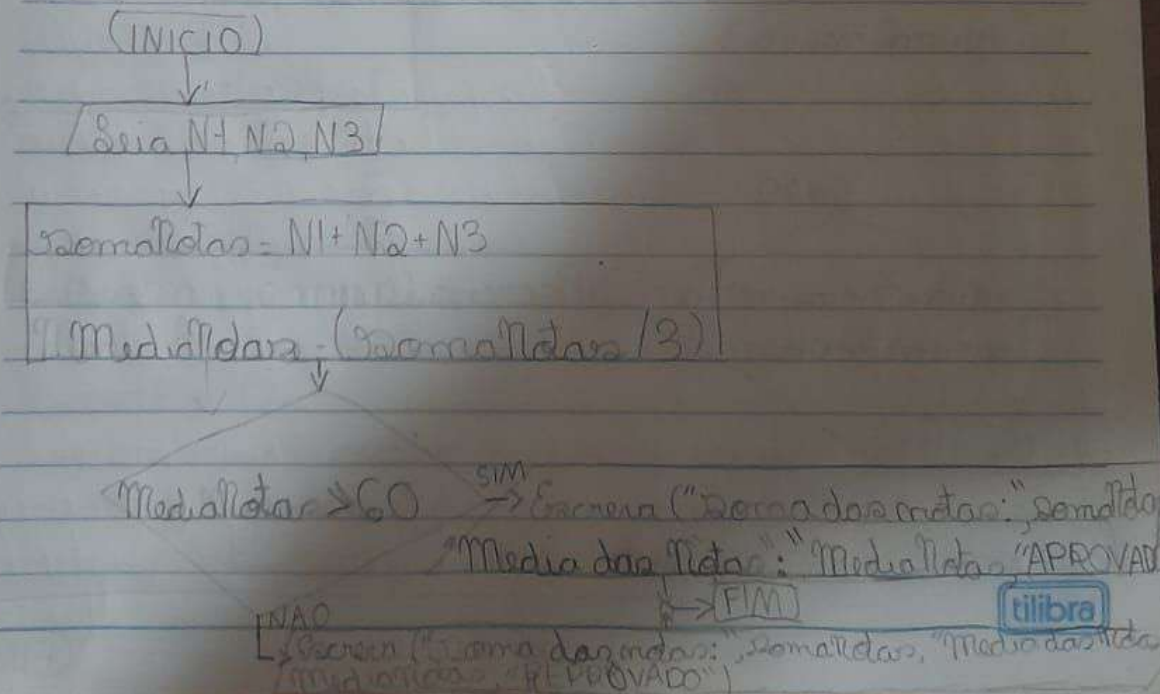 INICIO
Leia N1, N2, N3
somaNotas = N1 + N2 + N3
MediaNotas = (somaNotas / 3)
MediaNotas > 60
SIM
Escreva ("Soma das notas:", somaNota
"Media das Notas:" MediaNotas "APROVAD
FIM
tilibra
NAO
Escreva ("Soma das notas:", somaNotas, "Media das Nota
MediaNotas, "REPROVADO")